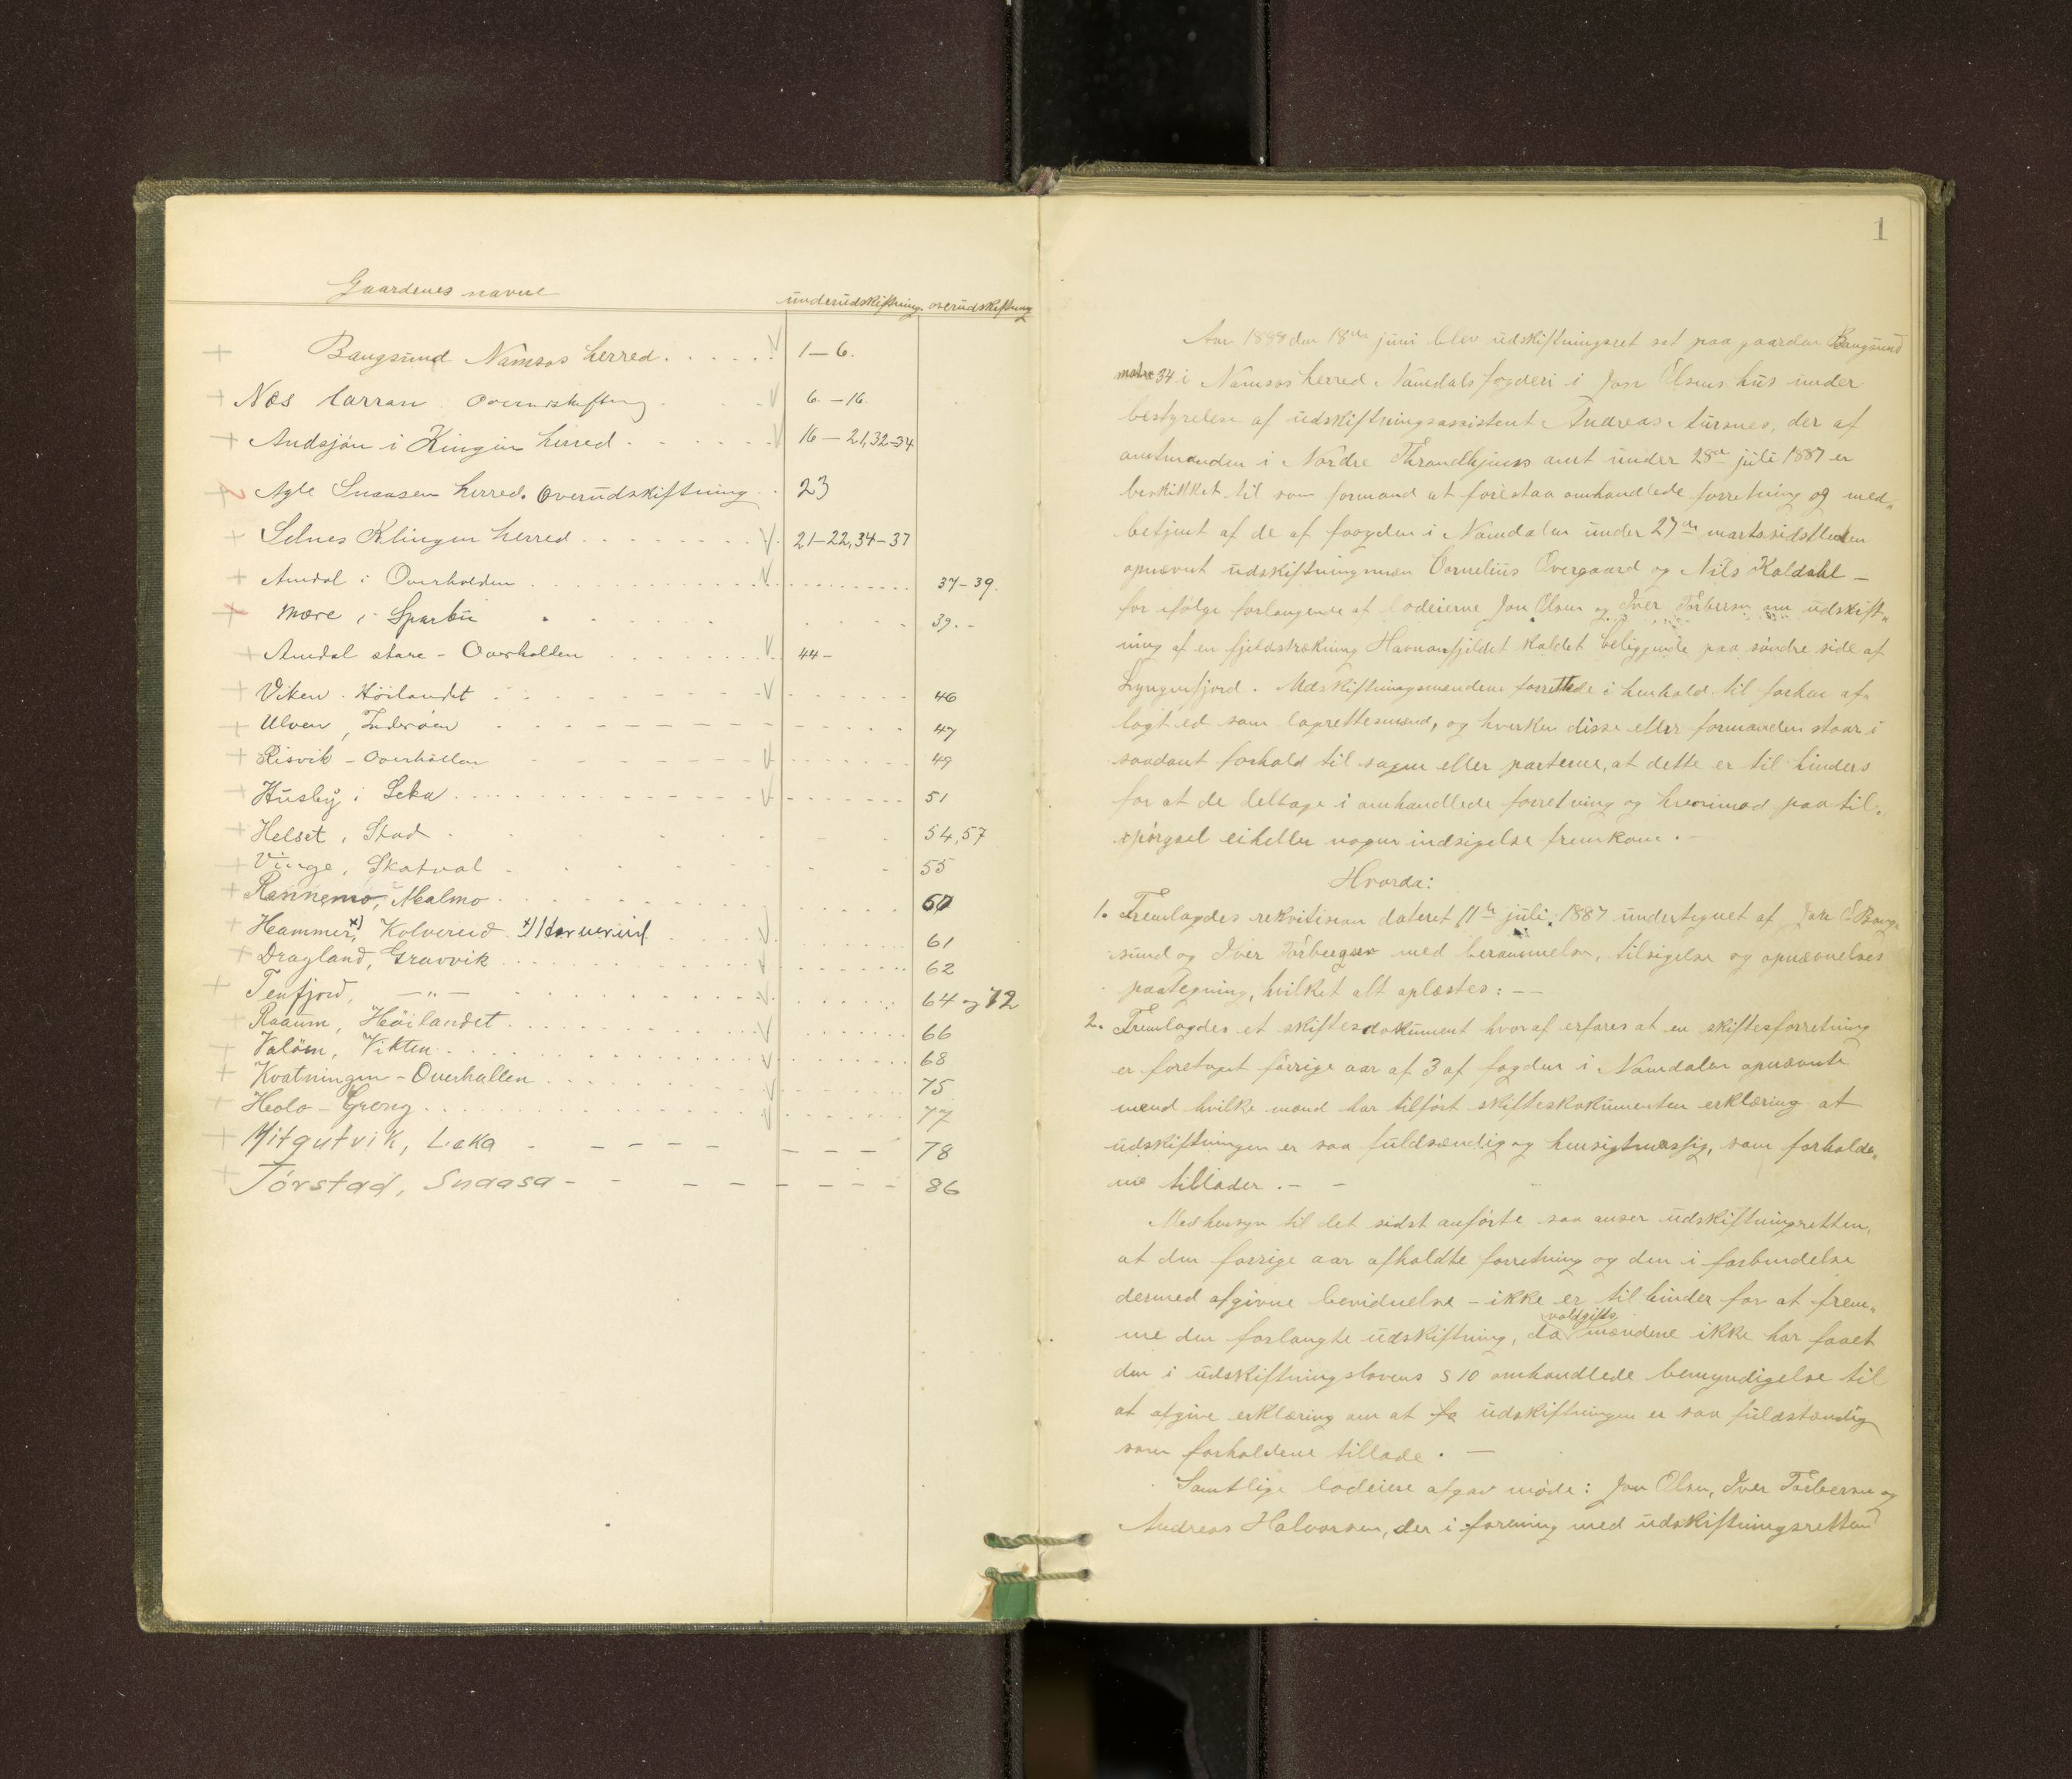 Gaardenes navne underudskiftning. overudskiftning
Bangsund Namsos herred. 1–6.
Nøs Overudskiftning 6.–16.
Andsjøn i Klingen herred 16–21,32–34
Agle Snaasen herred. Overudskiftning 23
Selnes Klingen herred 21–22,34–37
Amdal i Overhalden 37–39.
Mære i Sparbu 39.–
Amdal store – Overhallen 44–
Viken. Höilandet 46
Ulven, Inderøen 47
Risvik – Overhallen 49
Husby i Leka 51
Helset, Stod 54,57
Vinge, Skatval 55
Rannemo, Malmo 60
Hammer,x) Kolvereid x) 61
Dragland, Gravvik 62
Tenfjord, –„– 64 og 72
Raaum, Höilandet 66
Valöen, Vikten 68
Kvatningen – Overhallen 75
Heolo – Grong 77
Hitgutvik, Leka 78
Törstad, Snaasa 86
1
Aar 1888 den 18de juni blev udskiftningsret sat paa gaarden Bangsund
matr 34 i Namsos herred Namdals fogderi i Jon Olsens hus under
bestyrelse af udskiftningsassistent Andreas Aursnes, der af
amtmanden i Nordre Throndhjems amt under 28de juli 1887 er
beskikket til som formand at forestaa omhandlede forretning og med„
betjent af de af fogden i Namdalen under 27de marts sidstleden
opnævnt udskiftningmæn Cornelius Overgaard og Nils Kaldahl –
for ifølge forlangende af lodeierne Jon Olsen og Iver Torbersen om udskift„
ning af en fjeldstrækning Havnanfjeldet kaldet beliggende paa söndre side af
Lyngenfjord. Udskiftningsmændene forrettede i henhold til forhen af„
lagt ed som lagrettesmænd, og hverken disse eller formanden staar i
saadant forhold til sagen eller parterne, at dette er til hinders
for at de deltage i omhandlede forretning og hvorimod paa til„
spörgsel eiheller nogen indsigelse fremkom.
Hvorda:
1. Fremlagdes rekvisition dateret 11te juli 1887 undertegnet af Jon O Bang„
sund og Iver Torbergsen med berammelse, tilsigelse og opnævnelses
paategning, hvilket alt oplæstes: – –
2. Fremlagdes et skiftesdokument hvoraf erfares at en skiftesforretning
er foretaget forrige aar af 3 af fogden i Namdalen opnævnte
mænd hvilke mænd har tilført skiftesdokumentet erklæring at
udskiftningen er saa fuldstændig og hensigtmæssig, som forholde„
ne tillader. – –
Med hensyn til det sidst anförte saa anser udskiftningsretten,
at den forrige aar afholdte forretning og den i forbindelse
dermed afgivne bevidnelse – ikke er til hinder for at frem„
me den forlangte udskiftning, da voldgifts mændene ikke har faaet
den i udskiftningslovens § 10 omhandlede bemyndigelse til
at afgive erklæring om at fo udskiftningen er saa fuldstændig
som forholdene tillade. –
Samtlige lodeiere afgav møde: Jon Olsen, Iver Torbersen og
Andreas Halvorsen, der i forening med udskiftningsretten